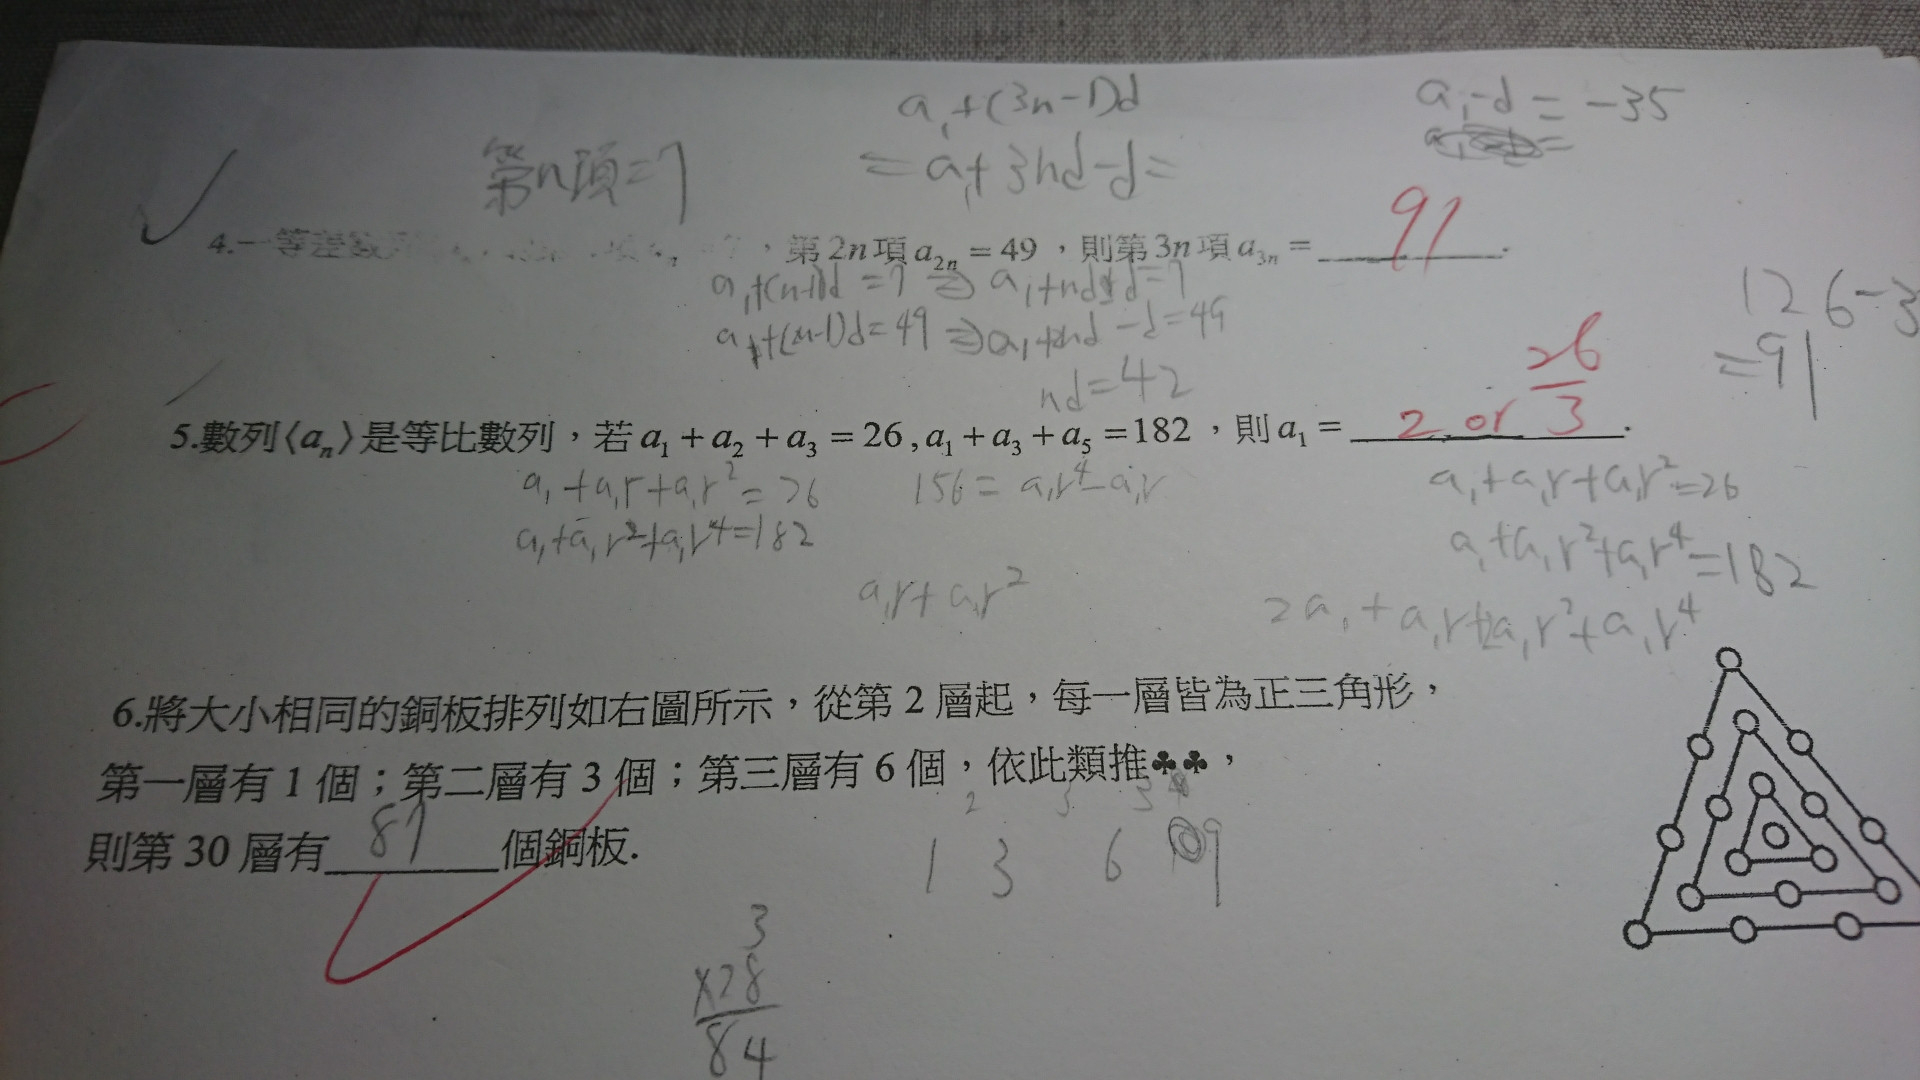 a₁+(3n-1)d
a₁-d = -35
第n項=7
= a₁+3nd-d=
4.一等差數列 ，第2n項 a₂ₙ = 49，則第3n項 a₃ₙ = 91 .
a₁+(n-1)d = 7 ⇒ a₁+nd-d=7
a₁+(2n-1)d=49 ⇒ a₁+2nd-d=49
nd=42
126-3
=91
5.數列⟨aₙ⟩是等比數列，若 a₁ + a₂ + a₃ = 26, a₁ + a₃ + a₅ = 182，則 a₁ = 2 or 26/3 .
a₁+a₁r+a₁r² = 26
156 = a₁r⁴-a₁r
a₁+a₁r+a₁r²=26
a₁+a₁r²+a₁r⁴=182
a₁+a₁r²+a₁r⁴=182
a₁r+a₁r²
2a₁+a₁r+2a₁r²+a₁r⁴
6.將大小相同的銅板排列如右圖所示，從第 2 層起，每一層皆為正三角形，
第一層有 1 個；第二層有 3 個；第三層有 6 個，依此類推♣♣，
2 3 3
則第 30 層有 87 個銅板.
1 3 6 9
3
×28
84